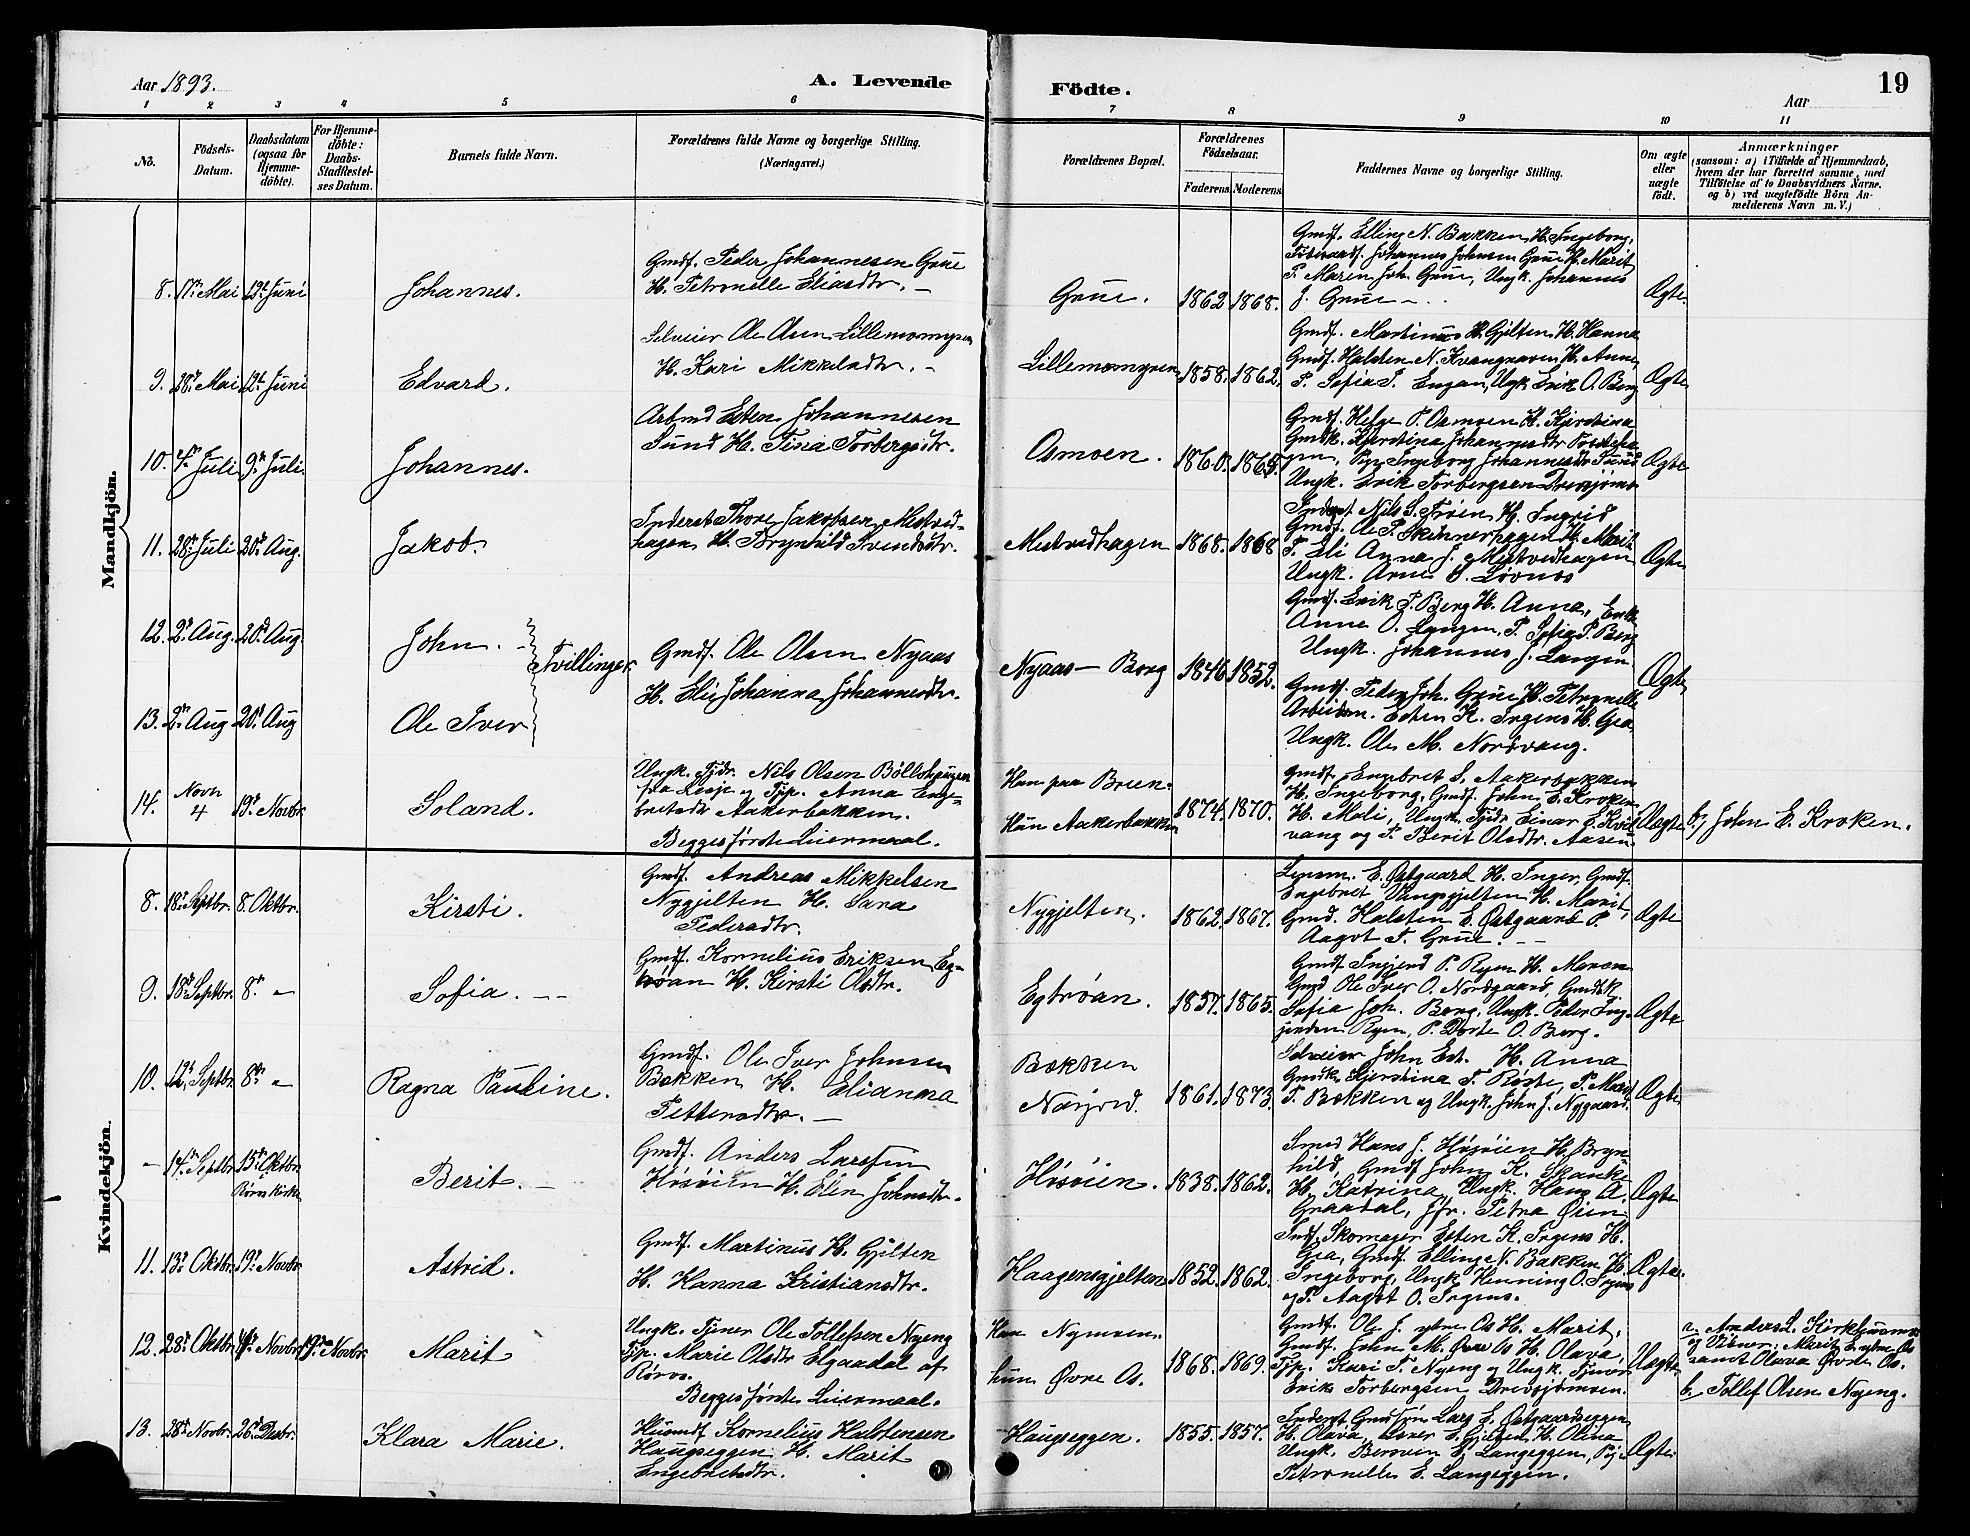 Aar 1893.
A. Levende
Födte.
Aar
19
1 2 3 4 5 6 7 8 9 10 11
No.
Födsels-
Datum.
Daabsdatum
(ogsaa for
Hjemme-
döbte).
For Hjemme-
döbte:
Daabs-
Stadfæstel-
ses Datum.
Barnets fulde Navn.
Forældrenes fulde Navne og borgerlige Stilling.
(Næringsvei.)
Forældrenes Bopæl.
Forældrenes
Födselsaar.
Faderens.
Moderens.
Faddernes Navne og borgerlige Stilling.
Om ægte
eller
uægte
födt.
Anmærkninger
(saasom: a) i Tilfælde af Hjemmedaab,
hvem der har forrettet samme, med
Tilföielse af to Daabsvidners Navne.
og b) ved uægtefödte Börn An-
melderens Navn m. V.)
Mandkjön.
8. 17de Mai 19de Juni
Johannes.
Gmdf. Peder Johannesen Grue
H. Petronelle Eliasdtr. —
Grue.
1862 1868.
Gmdf. Elling N. Bakken H. Ingeborg,
Johannes Johnsen Grue H. Marit
P. Maren Joh. Grue, Ungk. Johannes
J. Grue —
Ægte
9. 28de Mai 19de Juni
Edvard.
Selveier Ole Olsen Lillemomyren
H. Kari Mikkelsdtr. —
Lillemomyren
1858. 1862.
Gmdf. Martinus H. Gjelten H. Hanna
Gmdf. Halsten N. Kvangraven H. Anne,
P. Sofia P. Engan, Ungk. Erik O. Berg
Ægte
10. 4de Juli 9de Juli
Johannes.
Arbmd Esten Johannesen
Sund H. Tina Torbergsdtr.
Osmoen.
1860. 1865.
Gmdf. Helge P. Osmoen H. Kjerstina
Gmdk. Kjerstina Johannesdtr
Pige Ingeborg Johannesdtr Sund
Ungk. Erik Torbergsen Drevsjömo
Ægte
11. 28de Juli 20de Aug.
Jakob.
Inderst Thore Jakobsen Mistvid-
hagen H. Brynhild Svendsdtr.
Mistvidhagen
1868. 1868
Inderst Nils S. Trøen H. Ingrid
Gmdf. Ole P. Skinnerhagen H. Marit
P. Eli Anna J. Mistvidhagen
Ungk. Arne S. Løvnes
Ægte
12. 2de Aug. 20de Aug
John. —
Tvillinger.
Gmdf. Ole Olsen Nyaas
H. Eli Johanna Johannesdtr.
Nyaas — Borg
1846 1852.
Gmdf. Erik P. Berg H. Anne, Enk
Anne O. Langen, P. Sofie P. Berg
Ungk. Johannes J. Langen
Ægte
13. 2de Aug 20de Aug
Ole Iver
Gmdf. Peder Joh. Grue H. Petronelle
Arbeidsm. Esten K. Irgens H. Gea
Ungk. Ole M. Nordvang.
14. Novr
4
19de Novbr.
Soland.
Ungk. Tjdr. Nils Olsen Böllshaugen
fra Lesje og Tjp. Anna Enge-
bretsdtr Aakerbakken.
Begges første Leiermaal.
Han paa Breen.
Hun Aakerbakken
1874. 1870.
Gmdf. Engebret S. Aakerbakken
H. Ingeborg, Gmdf. John E. Kroken
H. Mali, Ungk. Tjdr Einar E. Kvil-
vang og P. Berit Olsdtr. Aasen
Uægte
b, John E. Kroken.
Kvindekjön.
8. 18de Septbr. 8. Oktbr.
Kirsti.
Gmdf. Andreas Mikkelsen
Nygjelten H. Sara
Pedersdtr.
Nygjelten.
1862. 1867.
Lensm. E. Østgaard H. Inger, Gmdf.
Engebret Vangsgjelten H. Marit,
Gmd. Halsten E. Østgaard P.
Aagot P. Grue. — —
Ægte
9. 18de Septbr. 8de "
Sofia. — —
Gmdf. Kornelius Eriksen Eg-
trøan H. Kirsti Olsdtr.
Egtrøan.
1857. 1865.
Gmdf Ingjerd P. Ryen H. Maren
Gmd Ole Iver O. Nordgaard, Gmdsk
Sofia Joh. Borg, Ungk. Peder Ing-
jerdsen Ryen, P. Dorte O. Borg.
Ægte
10. 12te Septbr. 8de "
Ragna Pauline.
Gmdf. Ole Iver Johnsen
Bakken H. Elianna
Pettersdtr. —
Bakken
Narjord.
1861. 1873.
Selveier John Est. H. Anna
Gmdk. Kjerstina T. Røste, P. Marit
T. Bakken og Ungk. John J. Nygaard.
Ægte
— 14de Septbr. 15de Oktbr.
Røros Kirke
Berit. —
Gmdf. Anders Larsen
Høsøien H. Elen Johnsdtr. —
Høsøien.
1838. 1862.
Smed Hans J. Høsøien H. Bryn-
hild, Gmdf John K. Skanke
H. Katrina, Ungk. Hans A.
Graadal, Jfr. Petra Øien
Ægte
11. 13de Oktbr. 19de Novbr.
Astrid.
Gmdf. Martinus H. Gjelten
H. Hanna Kristiansdtr.
Haagensgjelten
1852. 1862.
Ind. Skomager Esten K. Irgens H.
Gea, Gmdf. Elling N. Bakken H.
Ingeborg, Ungk. Henning O. Irgens
og P. Aagot O. Irgens.
Ægte.
12. 28de Oktbr. Novbr. 19de Novbr.
Marit
Ungk. Tjener Ole Tollefsen Nyeng
Tjp. Marie Olsdtr Elgaadal af
Røros.
Begges første Leiermaal.
Han Nymoen.
hun Øvre Os.
1868. 1869.
Gmdf. Ole J. ytre Os H. Marit,
Gmdf. John M. Øvre Os H. Olava,
Tjp. Kari T. Nyeng og Ungk. Tjener
Erik Torbergsen Drevsjömoen.
Uægte
a, Anders L. Kirkhusmo
og Vidner: Marit E. ytre Os
samt Olava Øvre Os.
b, Tollef Olsen Nyeng.
13. 28de Novbr. 26de Decbr.
Klara Marie.
Husmd Kornelius Halstensen
Haugseggen H. Marit
Engebretsdtr.
Haugseggen.
1855. 1857.
Inderst Gmdsøn Lars E. Østgaardseggen
H. Olava, E. Gjelten H. Olina
Ungk. Bersven E. Langeggen, Pige
Petronelle E. Langeggen.
Ægte